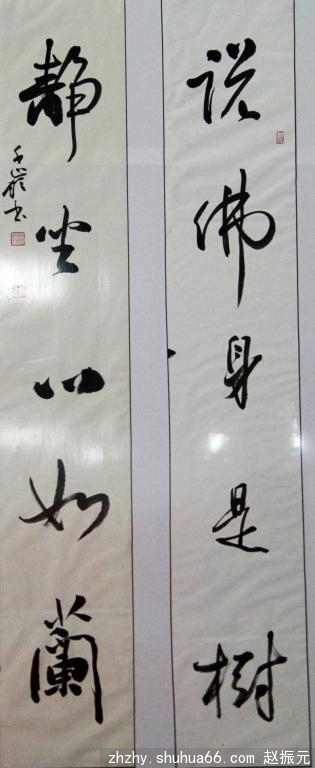 说佛身是樹
静坐心如蘭
zhzhy.shuhua66.com 赵振元